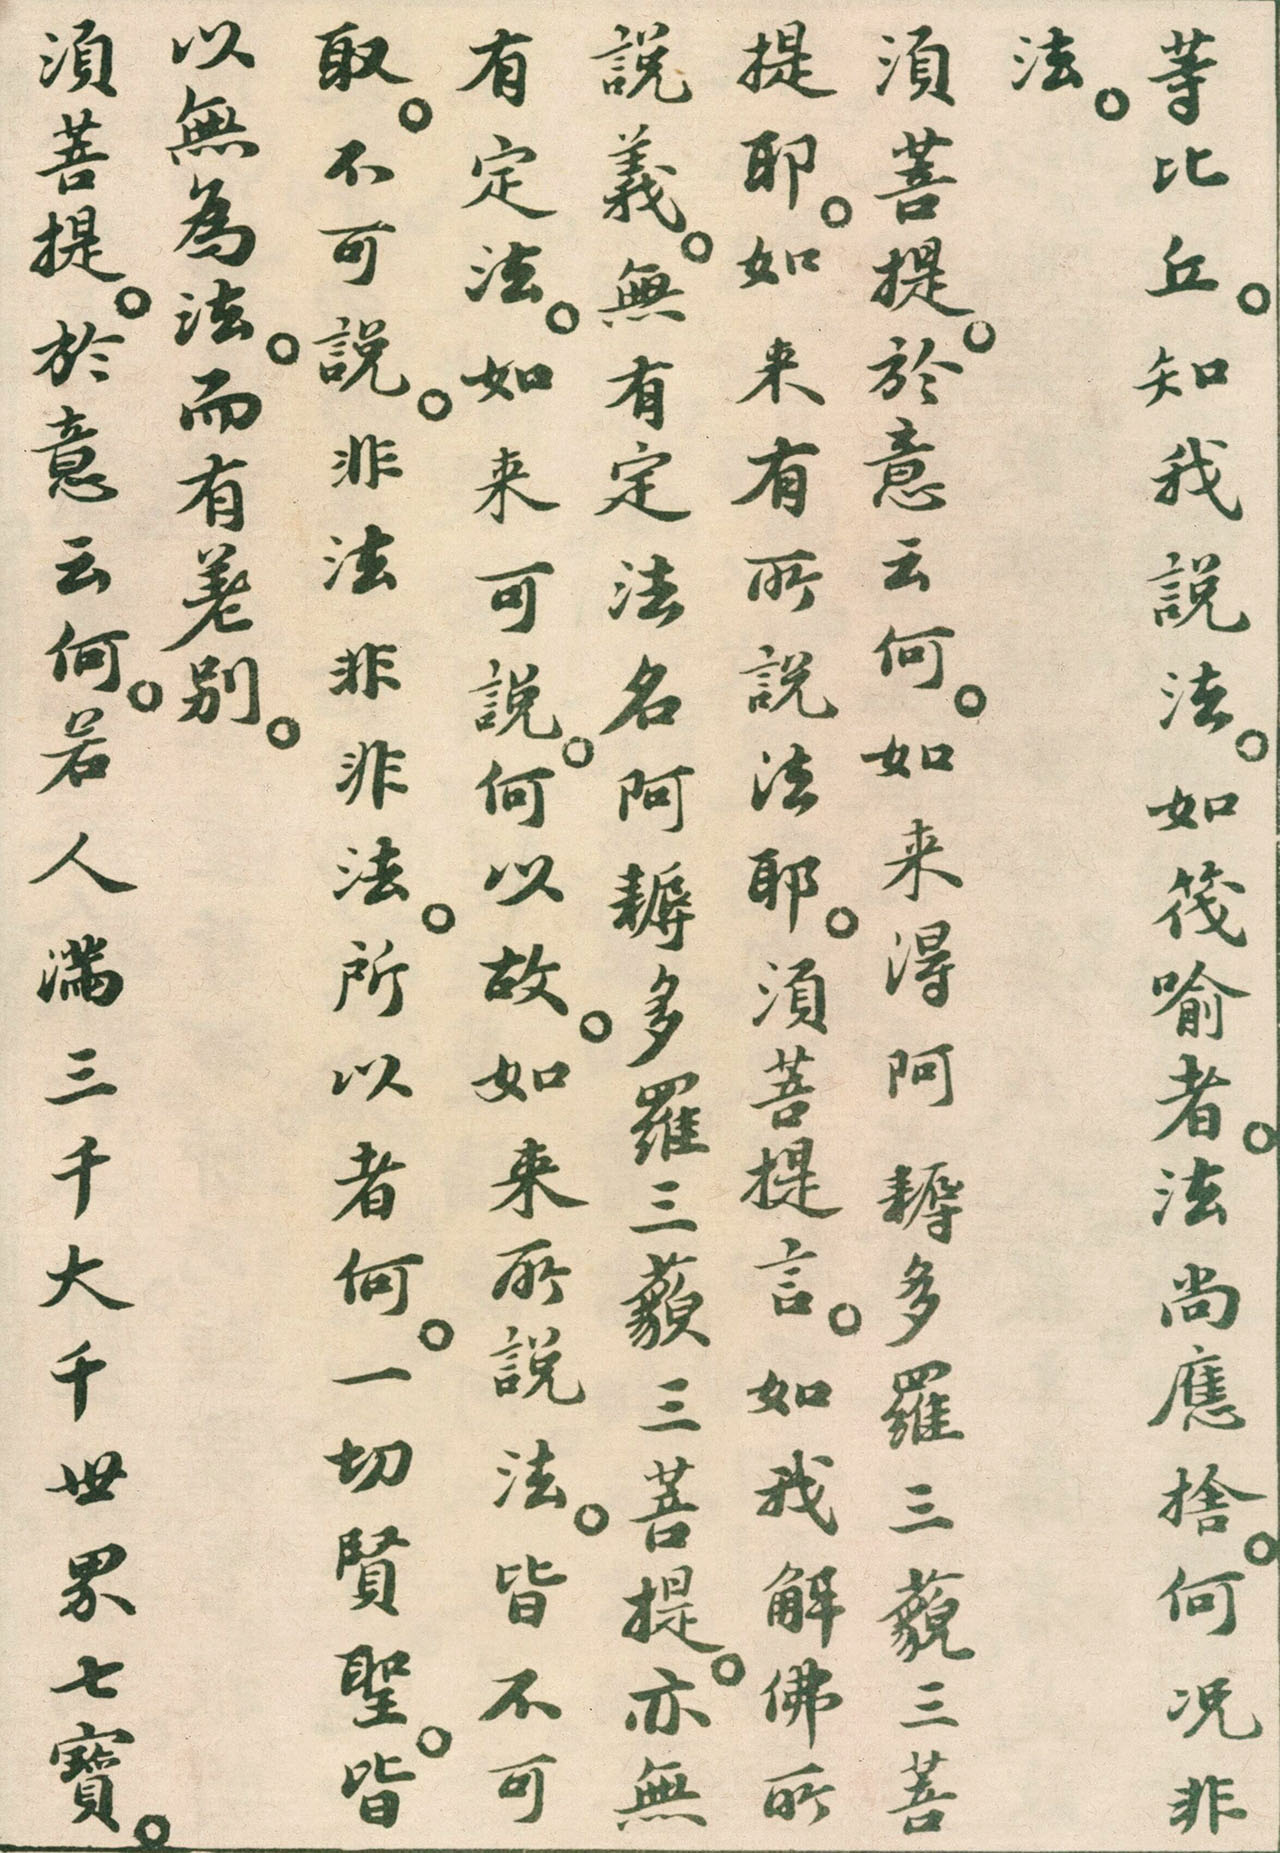 等比丘。知我說法。如筏喻者。法尚應捨。何況非
法。
須菩提。於意云何。如来得阿耨多羅三藐三菩
提耶。如来有所說法耶。須菩提言。如我解佛所
說義。無有定法名阿耨多羅三藐三菩提。亦無
有定法。如来可說。何以故。如来所說法。皆不可
取。不可說。非法非非法。所以者何。一切賢聖。皆
以無為法。而有差別。
須菩提。於意云何。若人滿三千大千世界七寶。